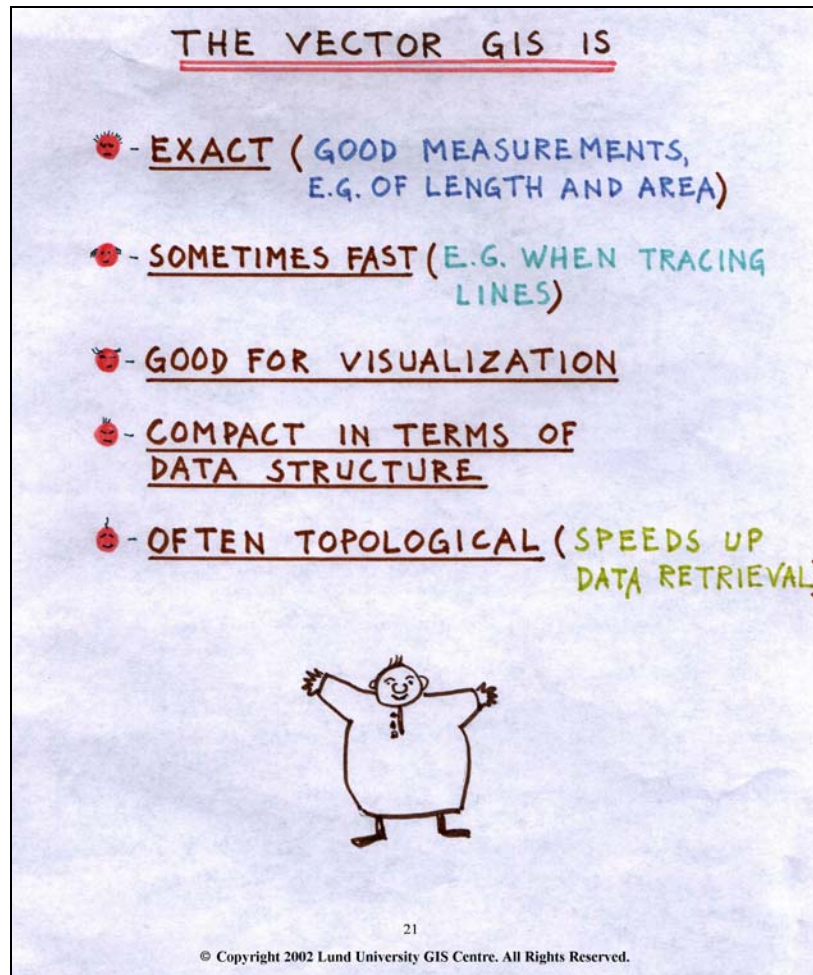 THE VECTOR GIS IS
- EXACT (GOOD MEASUREMENTS,
E.G. OF LENGTH AND AREA)
- SOMETIMES FAST (E.G. WHEN TRACING
LINES)
- GOOD FOR VISUALIZATION
- COMPACT IN TERMS OF
DATA STRUCTURE
- OFTEN TOPOLOGICAL (SPEEDS UP
DATA RETRIEVAL)
21
© Copyright 2002 Lund University GIS Centre. All Rights Reserved.